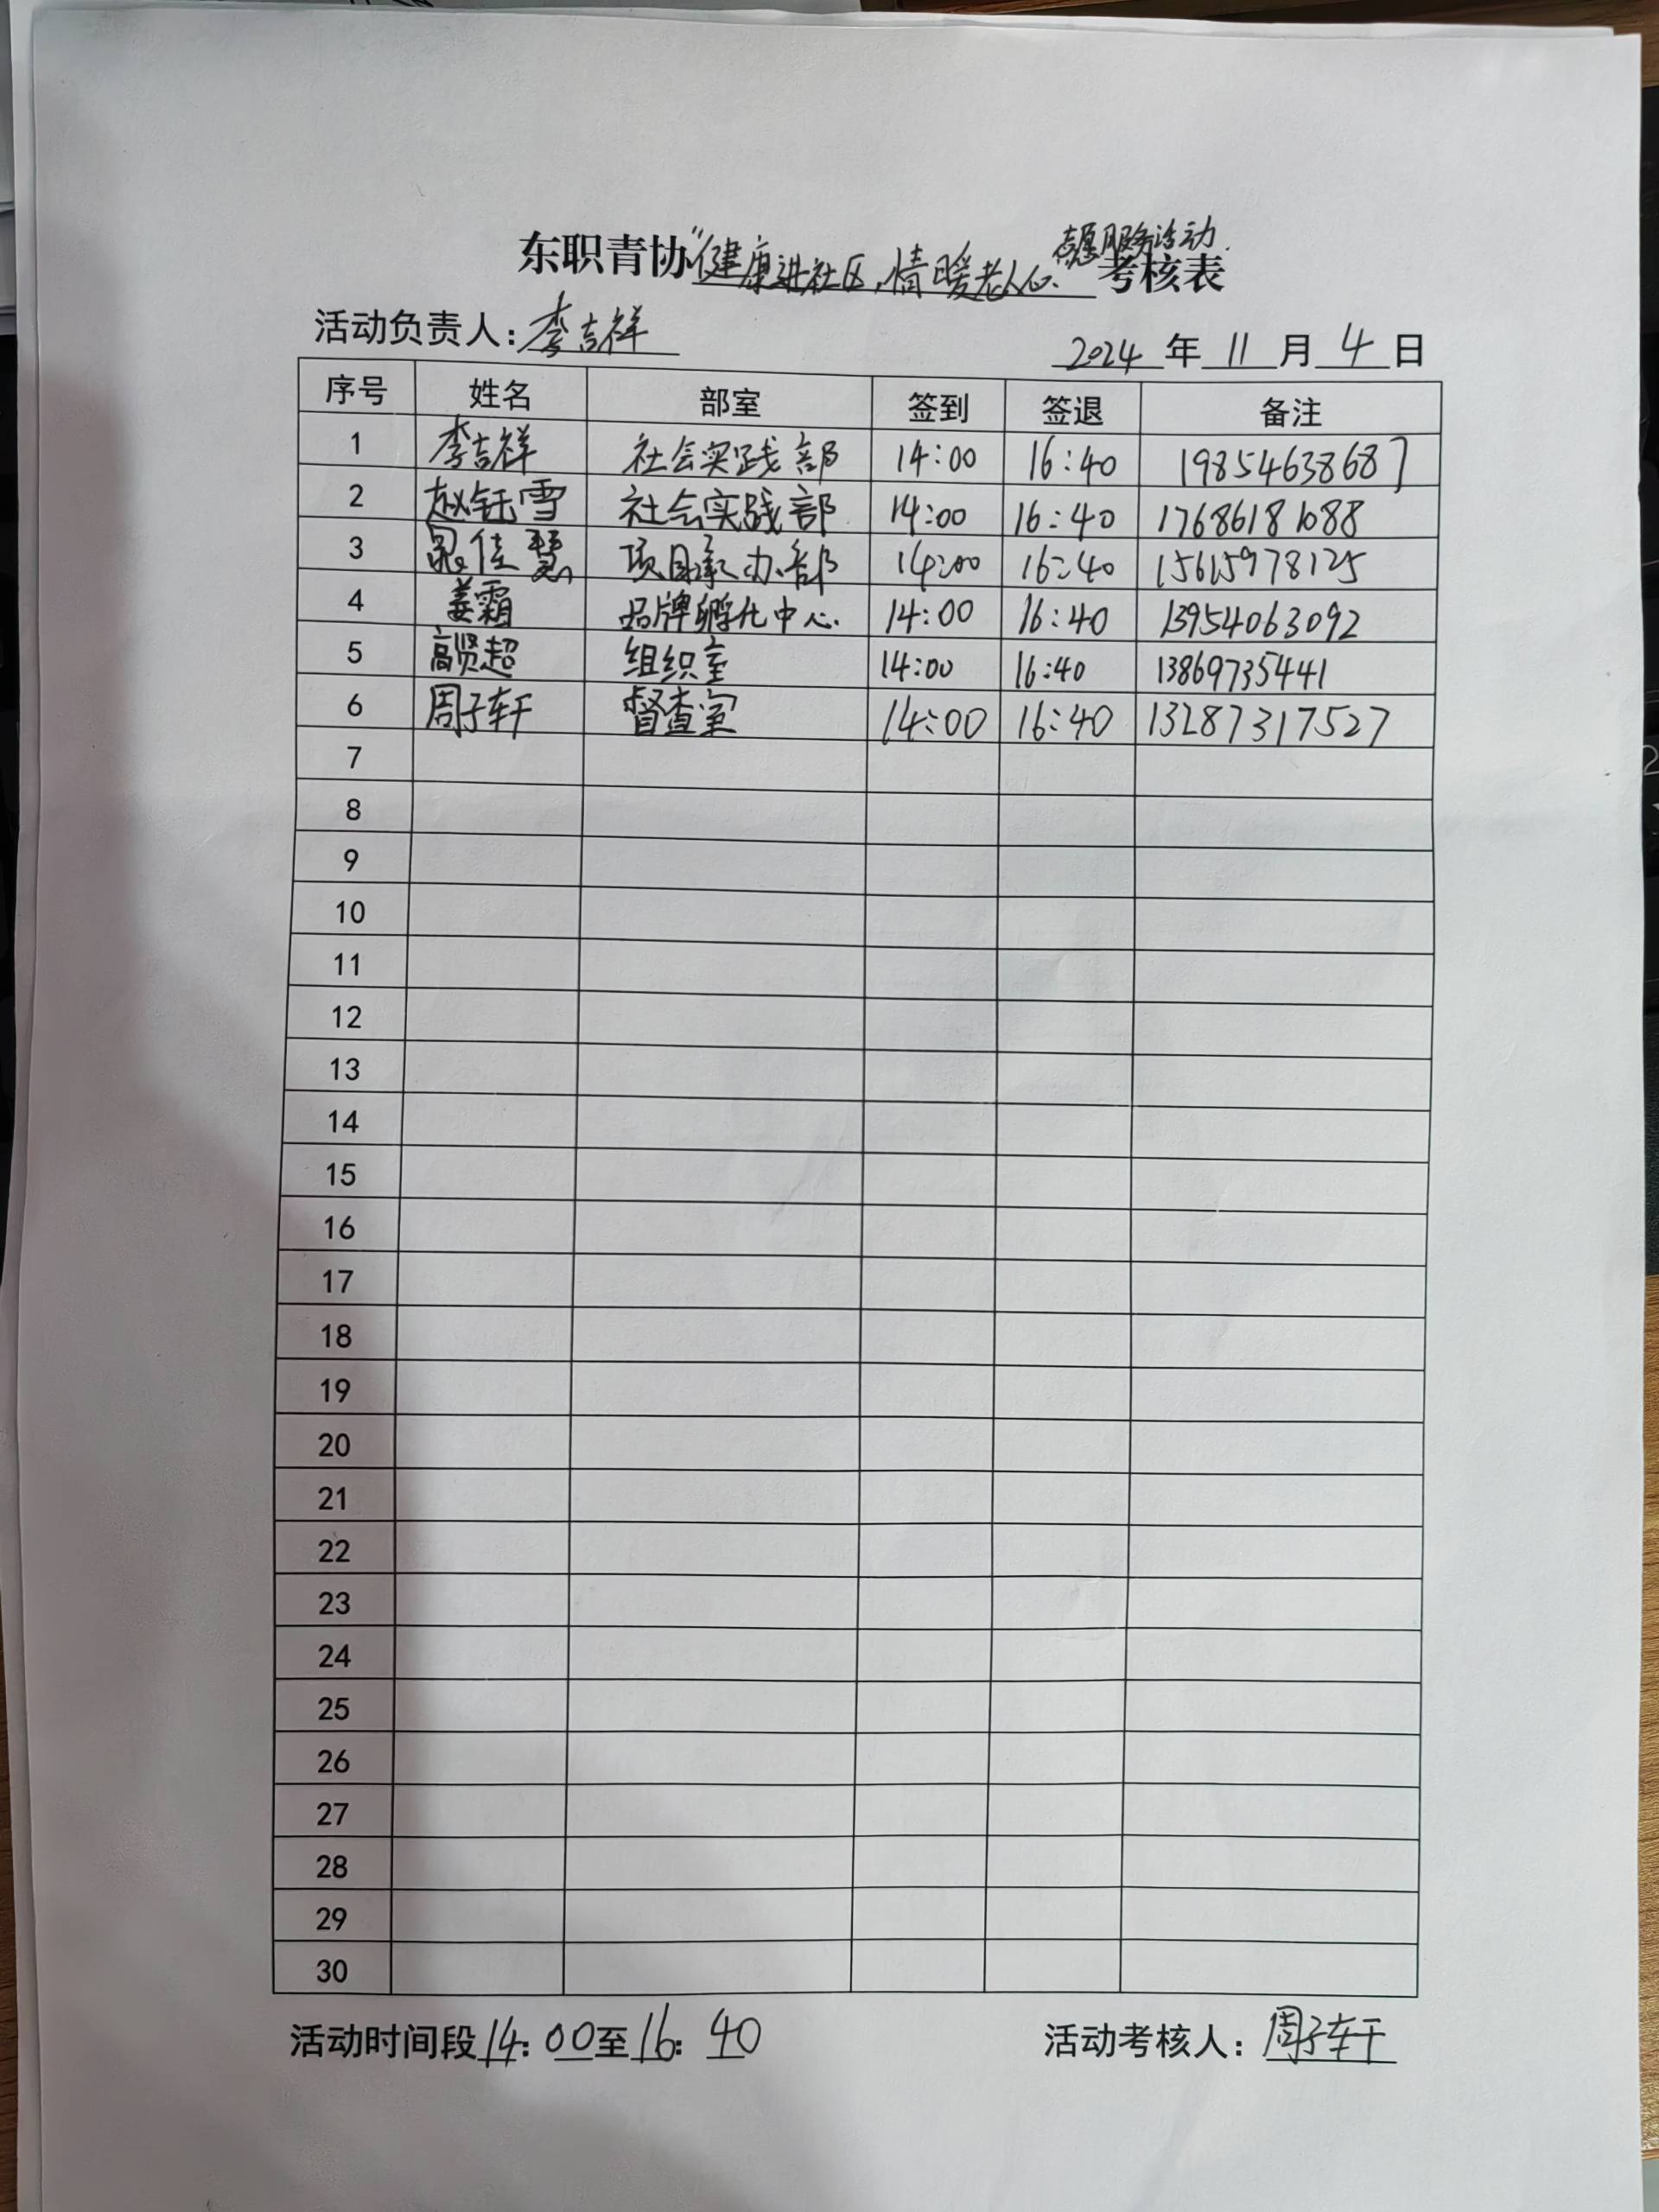 志愿服务活动
东职青协"健康进社区,情暖老人心.考核表
活动负责人: 李吉祥
2024 年 11 月 4 日
序号 姓名 部室 签到 签退 备注
1 李吉祥 社会实践部 14:00 16:40 19854638687
2 赵钰雪 社会实践部 14:00 16:40 17686181088
3 佳慧 项目承办部 14:00 16:40 15615978125
4 姜霜 品牌孵化中心 14:00 16:40 13954063092
5 高贤超 组织室 14:00 16:40 13869735441
6 周子轩 督查室 14:00 16:40 13287317527
7
8
9
10
11
12
13
14
15
16
17
18
19
20
21
22
23
24
25
26
27
28
29
30
活动时间段14:00至16:40 活动考核人: 周子轩